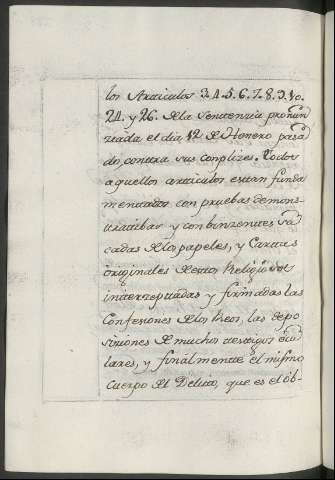 los Articulos 3. 4. 5. 6. 7. 8. 9. 10.
24. y 26. de la Sentenzia pronun
ziada el dia 12 de Henero pasa
do, contra sus conplizes. Todos
aquellos articulos estan funda
mentados con pruebas demons
tratibas y conbinzentes sa
cadas de los papeles, y Cartas
originales de estos Religiosos
interzeptadas y firmadas las
Confesiones de los Reos, las depo
siziones de muchos testigos ocu
lares, y finalmente el mismo
cuerpo del Delito, que es el ob-